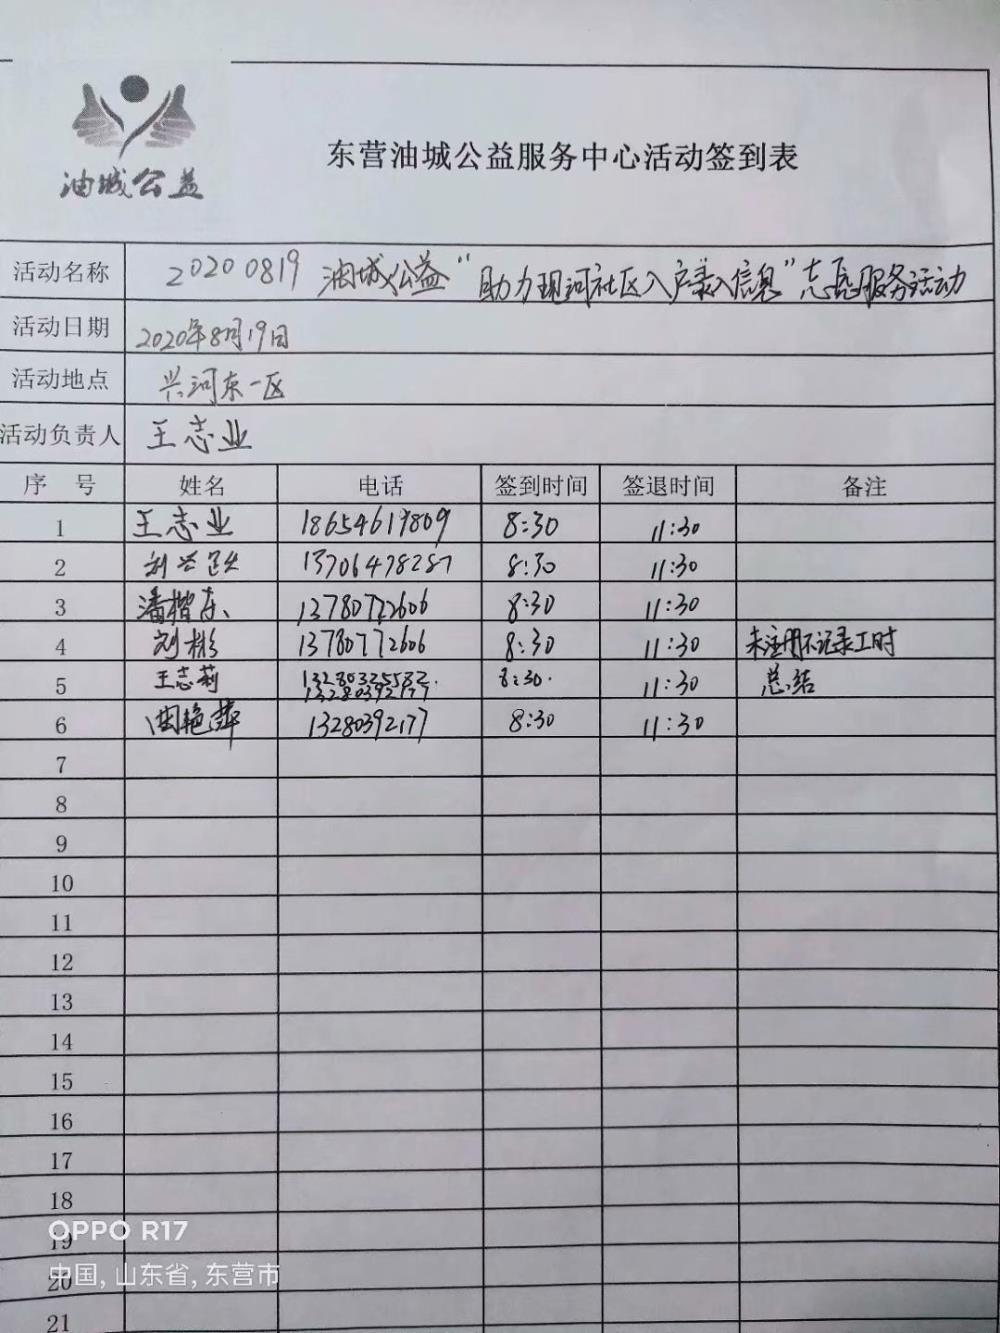 油城公益
东营油城公益服务中心活动签到表
活动名称 20200819 油城公益“助力现河社区入户录入信息”志愿服务活动
活动日期 2020年8月19日
活动地点 兴河东一区
活动负责人 王志业
序 号 姓名 电话 签到时间 签退时间 备注
1 王志业 18654619809 8:30 11:30
2 13706478287 8:30 11:30
3 潘楷东 13780772606 8:30 11:30
4 刘彬 13780772606 8:30 11:30 未注册不记录工时
5 王志莉 8:30. 11:30 总结
6 曲艳萍 13280392177 8:30 11:30
7
8
9
10
11
12
13
14
15
16
17
18
OPPO R17
19
中国, 山东省, 东营市
20
21